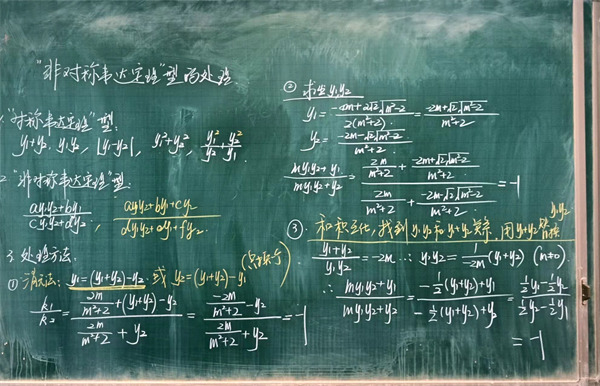 "非对称韦达定理"型的处理
1. "对称韦达定理"型:
y₁+y₂, y₁y₂, |y₁-y₂|, y₁²+y₂², y₁²/y₂+y₂²/y₁
2. "非对称韦达定理"型:
(ay₁y₂+by₁)/(cy₁y₂+dy₂), (ay₁y₂+by₁+cy₂)/(dy₁y₂+ey₁+fy₂)
3. 处理方法:
① 消元法: y₁=(y₁+y₂)-y₂ 或 y₂=(y₁+y₂)-y₁
k₁/k₂=(2m/(m²+2)+(y₁+y₂)-y₂)/(2m/(m²+2)+y₂)=(-2m/(m²+2)-y₂)/(2m/(m²+2)+y₂)=-1
② 求出y₁,y₂
y₁=(-4m+2√2√(m²-2))/(2(m²+2))=(-2m+√2√(m²-2))/(m²+2)
y₂=(-2m-√2√(m²-2))/(m²+2)
(my₁y₂+y₁)/(my₁y₂+y₂)=(2m/(m²+2)+(-2m+√2√(m²-2))/(m²+2))/(2m/(m²+2)+(-2m-√2√(m²-2))/(m²+2))=-1
③ 和积互化,找到y₁y₂和y₁+y₂关系,用y₁+y₂替换y₁y₂
(y₁+y₂)/(y₁y₂)=-2m ∴y₁y₂=1/(-2m)(y₁+y₂) (m≠0)
∴(my₁y₂+y₁)/(my₁y₂+y₂)=(-½(y₁+y₂)+y₁)/(-½(y₁+y₂)+y₂)=(½y₁-½y₂)/(½y₂-½y₁)
=-1